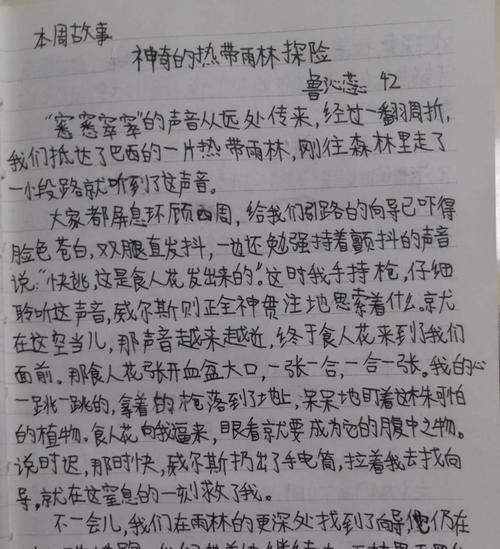 本周故事
神奇的热带雨林探险
鲁沁蕊 42
“窸窸窣窣”的声音从远处传来,经过一翻周折,
我们抵达了巴西的一片热带雨林,刚往森林里走了
一小段路就听到了这声音。
大家都屏息环顾四周,给我们引路的向导已吓得
脸色苍白,双腿直发抖,一边还勉强持着颤抖的声音
说:“快逃,这是食人花发出来的”。这时我手持枪,仔细
聆听这声音,威尔斯则正全神贯注地思索着什么。就
在这空当儿,那声音越来越近,终于食人花来到了我们
面前。那食人花张开血盆大口,一张一合,一合一张。我的心
一跳一跳的,拿着的枪落到了地上,呆呆地盯着这株可怕
的植物。食人花向我逼来,眼看就要成为它的腹中之物。
说时迟,那时快,威尔斯扔出了手电筒,拉着我去找向
导,就在这窒息的一刻救了我。
不一会儿,我们在雨林的更深处找到了向导,他仍在